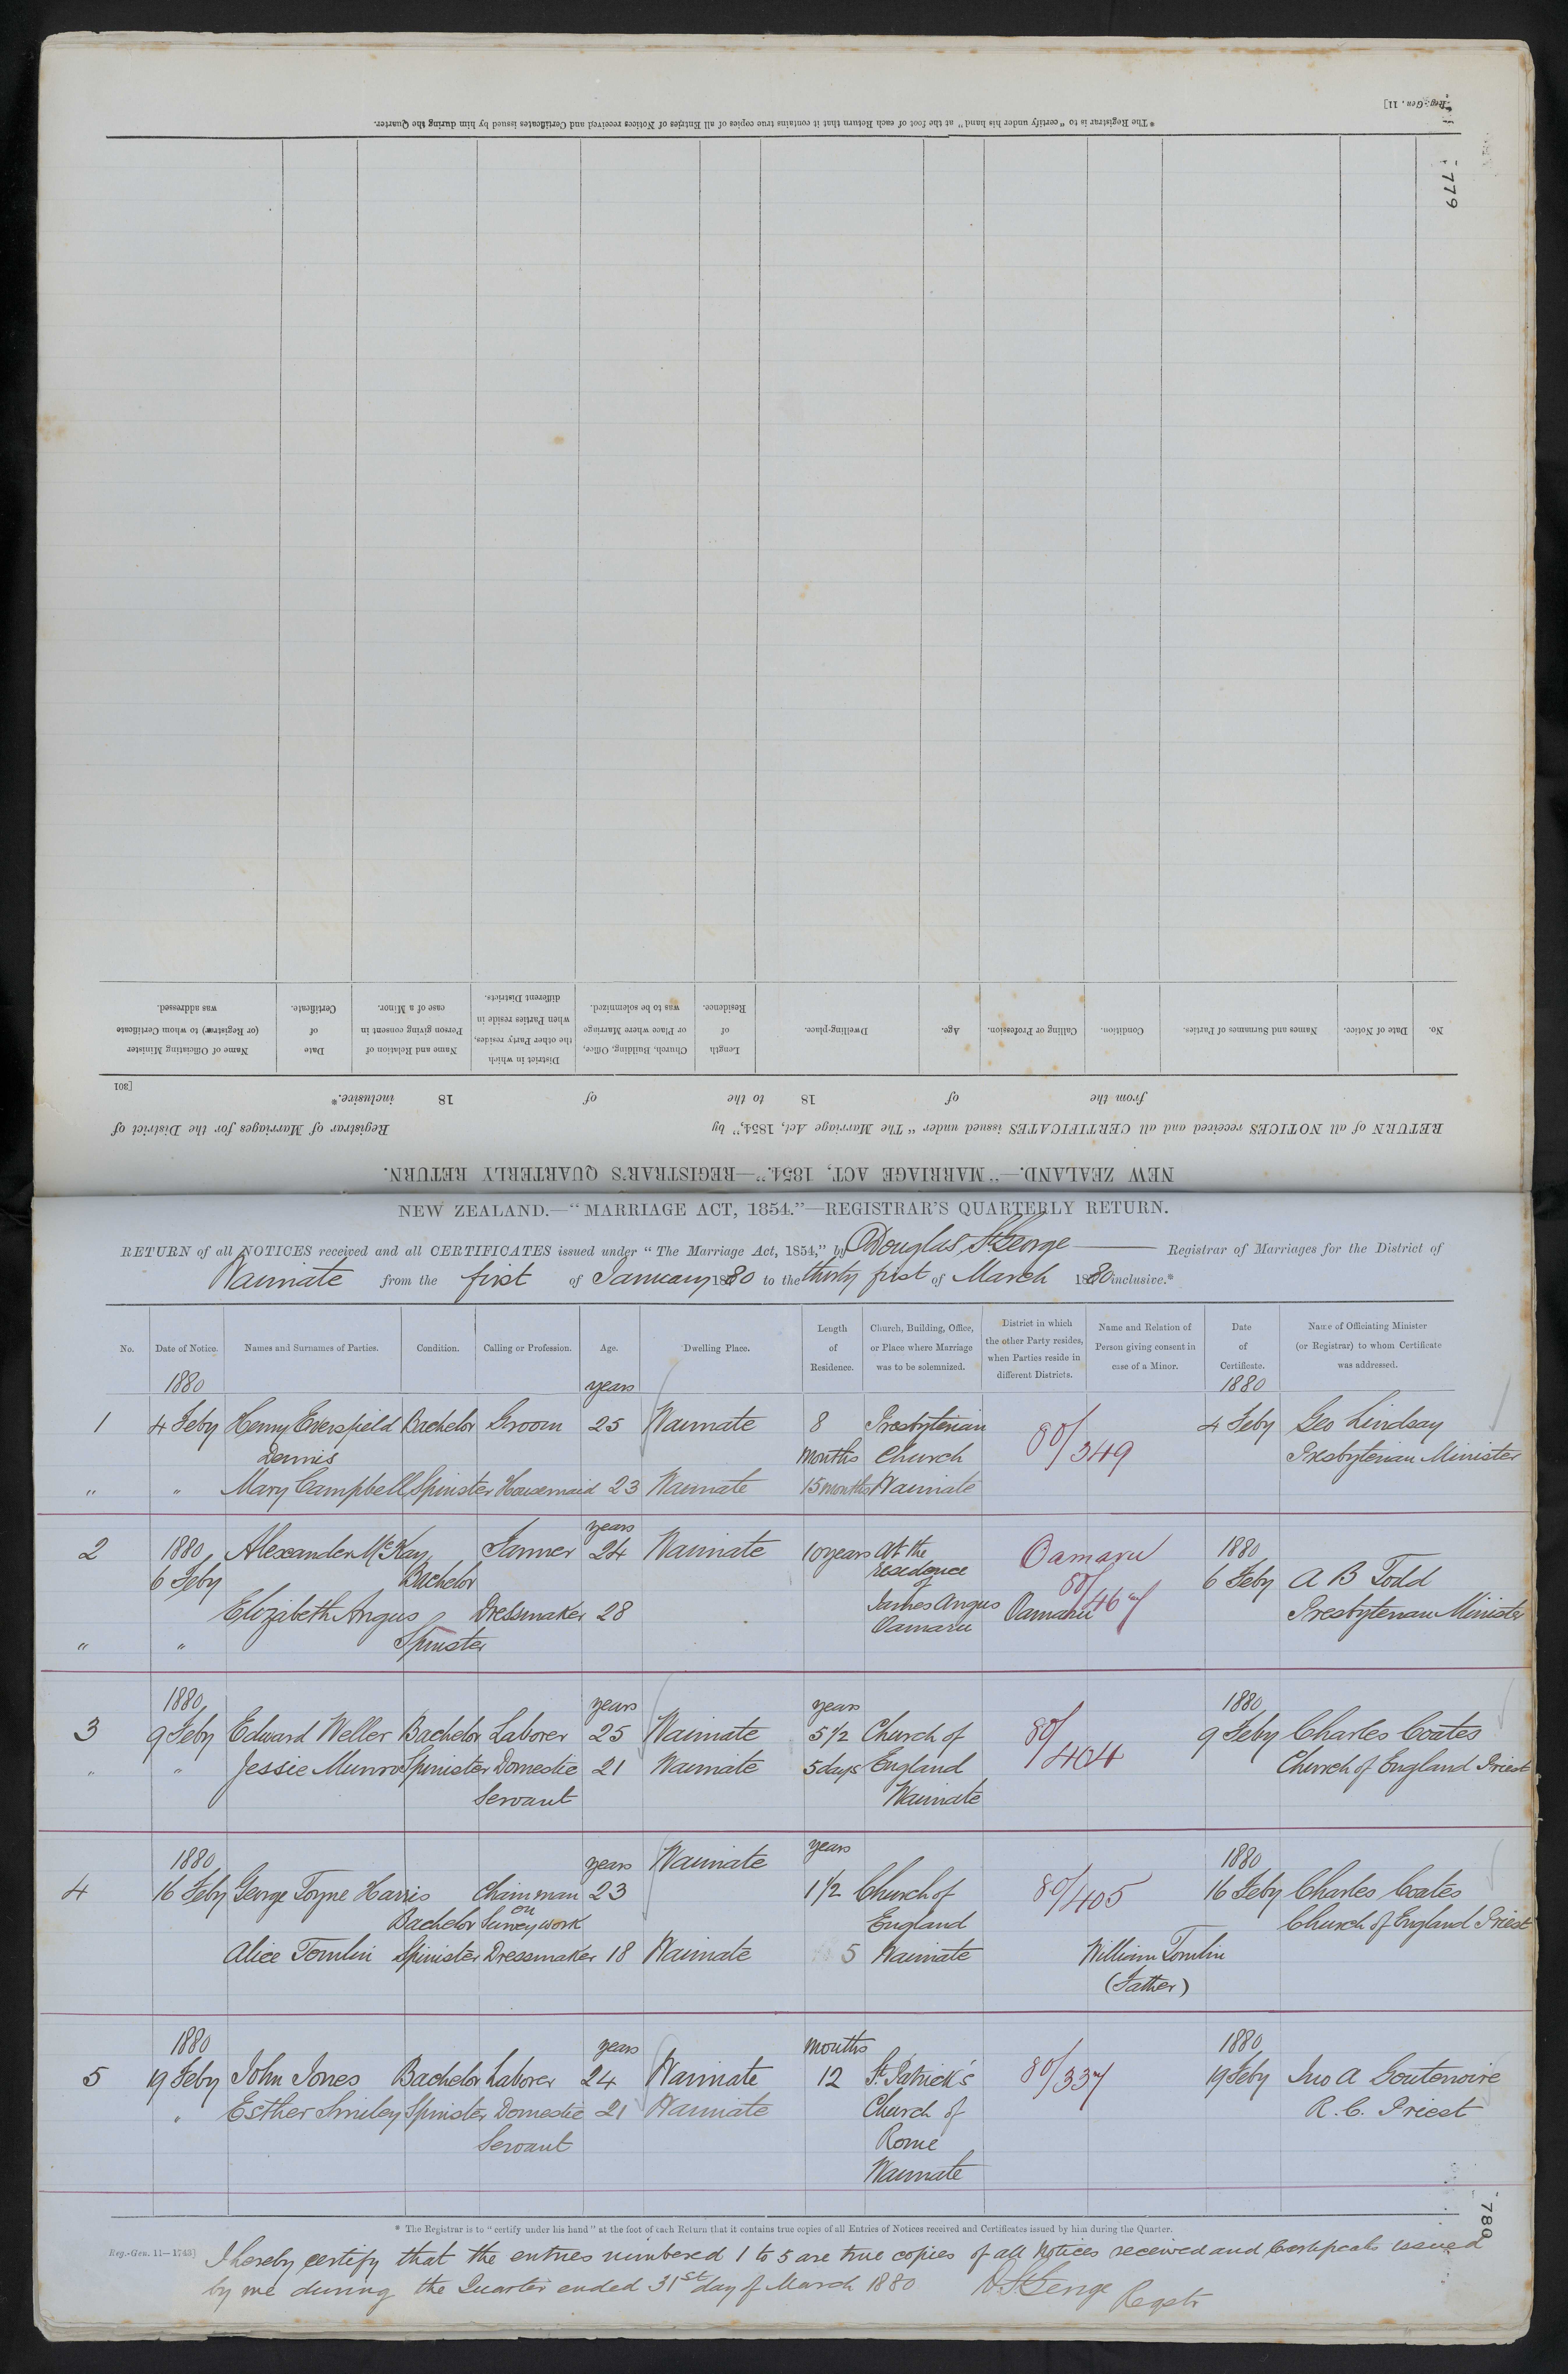 Reg.-Gen. 11]
* The Registrar is to "certify under his hand" at the foot of each Return that it contains true copies of all Entries of Notices received and Certificates issued by him during the Quarter.
779
No.
Date of Notice.
Names and Surnames of Parties.
Condition.
Calling or Profession.
Age.
Dwelling-place.
Length of Residence.
Church, Building, Office, or Place where Marriage was to be solemnized.
District in which the other Party resides, when Parties reside in different Districts.
Name and Relation of Person giving consent in case of a Minor.
Date of Certificate.
Name of Officiating Minister (or Registrar) to whom Certificate was addressed.
[301
from the of 18 to the of 18 inclusive.*
RETURN of all NOTICES received and all CERTIFICATES issued under "The Marriage Act, 1854," by Registrar of Marriages for the District of
NEW ZEALAND.—"MARRIAGE ACT, 1854."—REGISTRAR'S QUARTERLY RETURN.
NEW ZEALAND.—"MARRIAGE ACT, 1854."—REGISTRAR'S QUARTERLY RETURN.
RETURN of all NOTICES received and all CERTIFICATES issued under "The Marriage Act, 1854," by Douglas St George Registrar of Marriages for the District of
Waimate from the first of January 1880 to the thirty first of March 1880 inclusive.*
No.
Date of Notice.
Names and Surnames of Parties.
Condition.
Calling or Profession.
Age.
Dwelling Place.
Length of Residence.
Church, Building, Office, or Place where Marriage was to be solemnized.
District in which the other Party resides, when Parties reside in different Districts.
Name and Relation of Person giving consent in case of a Minor.
Date of Certificate.
Name of Officiating Minister (or Registrar) to whom Certificate was addressed.
1880 years 1880
1 4 Feby Henry Eversfield Bachelor Groom 25 Waimate 8 Presbyterian 80/349 4 Feby Geo Lindsay
Dennis months Church Presbyterian Minister
" " Mary Campbell Spinster Housemaid 23 Waimate 15 months Waimate
years
2 1880 Alexander McKay Farmer 24 Waimate 10 years At the Oamaru 1880
6 Feby Bachelor residence of 80/467 6 Feby A B Todd
Elizabeth Angus Dressmaker 28 James Angus Oamaru Presbyterian Minister
" " Spinster Oamaru
1880 years years 1880
3 9 Feby Edward Weller Bachelor Laborer 25 Waimate 5 1/2 Church of 80/404 9 Feby Charles Coates
" " Jessie Munro Spinster Domestic 21 Waimate 5 days England Church of England Priest
Servant Waimate
1880 years Waimate years 1880
4 16 Feby George Toyne Harris Chainman 23 1 1/2 Church of 80/405 16 Feby Charles Coates
Bachelor on Survey work England Church of England Priest
Alice Tomlin Spinster Dressmaker 18 Waimate 5 Waimate William Tomlin
(Father)
1880 years months 1880
5 19 Feby John Jones Bachelor Laborer 24 Waimate 12 St Patrick's 80/337 19 Feby Jno A Goutenoire
" Esther Smiley Spinster Domestic 21 Waimate Church of R. C. Priest
Servant Rome
Waimate
780
* The Registrar is to "certify under his hand" at the foot of each Return that it contains true copies of all Entries of Notices received and Certificates issued by him during the Quarter.
Reg.-Gen. 11—1743]
I hereby certify that the entries numbered 1 to 5 are true copies of all Notices received and Certificates issued
by me during the Quarter ended 31st day of March 1880 D. St George Registr